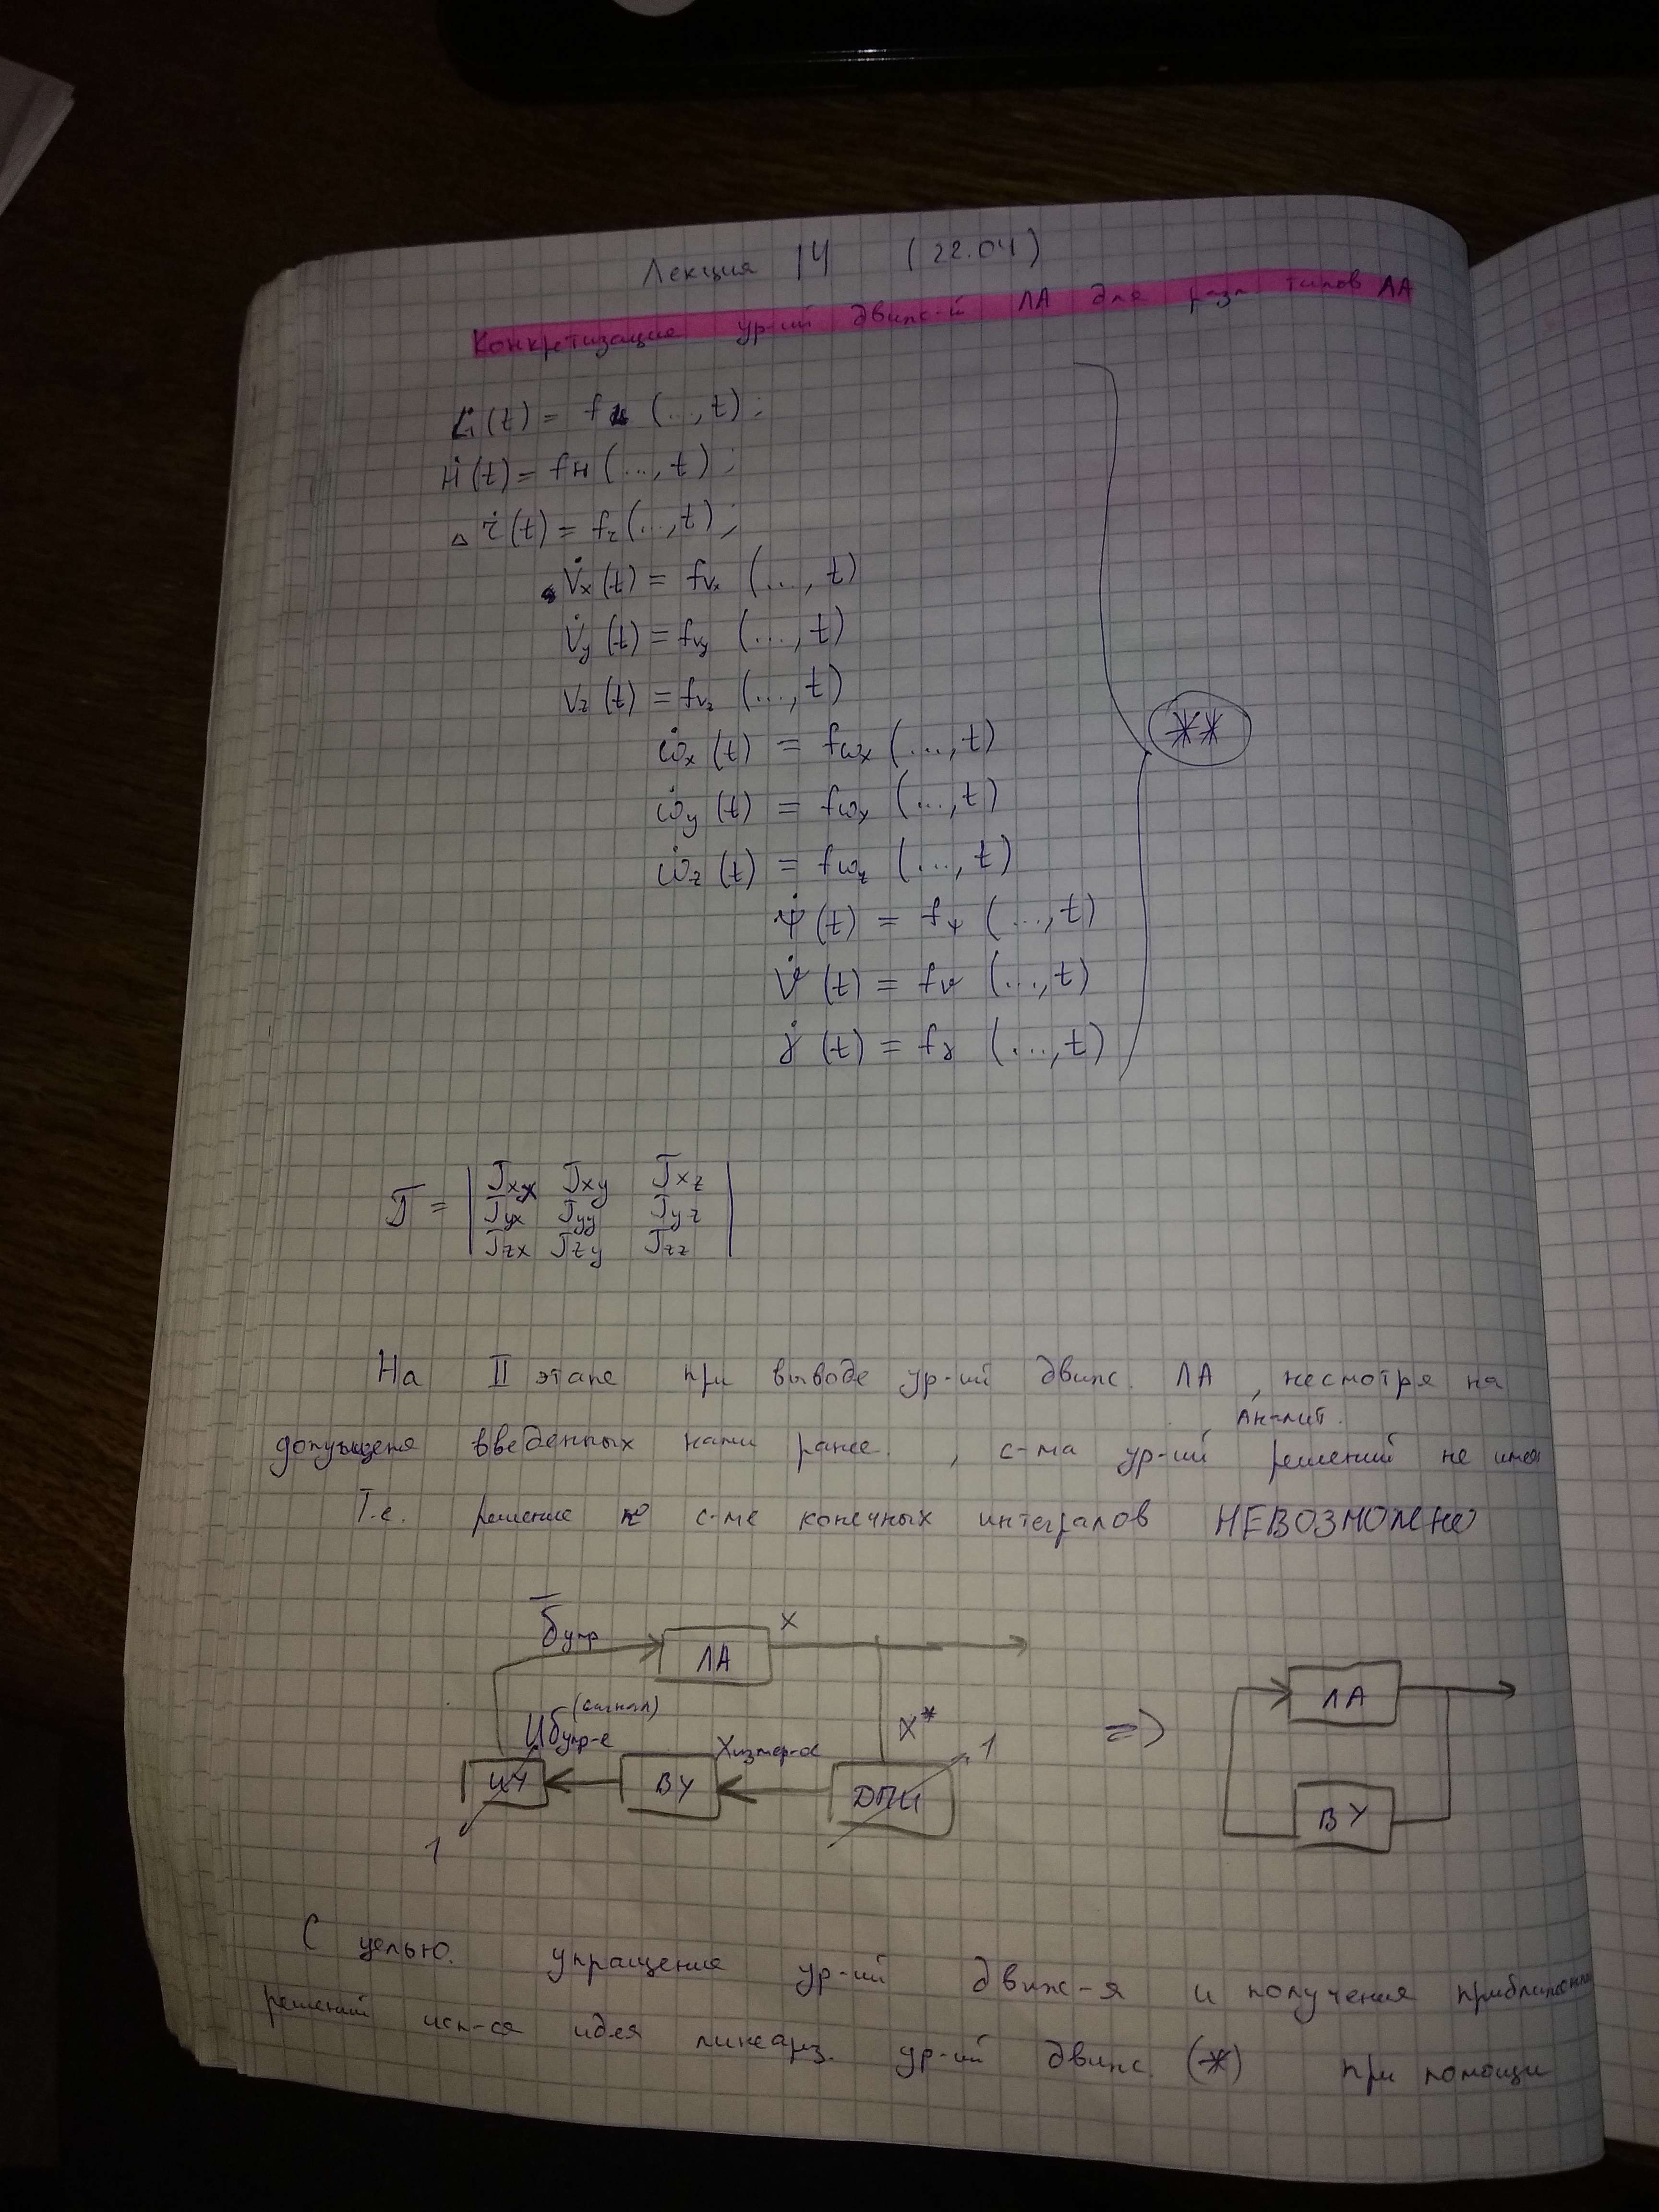 Лекция 14 (22.04)
Конкретизация ур-ий движ-й ЛА для разл типов ЛА
L̇(t) = f_L (..., t);
Ḣ(t) = f_H (..., t);
ż(t) = f_z (..., t);
V̇x(t) = f_Vx (..., t)
V̇y(t) = f_Vy (..., t)
Vz(t) = f_Vz (..., t)
ω̇x(t) = f_ωx (..., t)
**
ω̇y(t) = f_ωx (..., t)
ω̇z(t) = f_ωz (..., t)
ψ̇(t) = f_ψ (..., t)
ϑ̇(t) = f_ϑ (..., t)
γ̇(t) = f_γ (..., t)
J = | Jxx Jxy Jxz
Jyx Jyy Jyz
Jzx Jzy Jzz |
На II этапе при выводе ур-ий движ. ЛА, несмотря на
Аналит.
допущения введенных нами ранее., с-ма ур-ий решений не имеет
Т.е. решение в с-ме конечных интегралов НЕВОЗМОЖНО
δ̅упр ЛА X
(сигнал)
Uδупр-е X*
ИУ ВУ Xизмер-α ДПИ 1
1
=> ЛА
ВУ
С целью. упращения ур-ий движ-я и получения приближенных
решений исп-ся идея линеариз. ур-ий движ. (*) при помощи